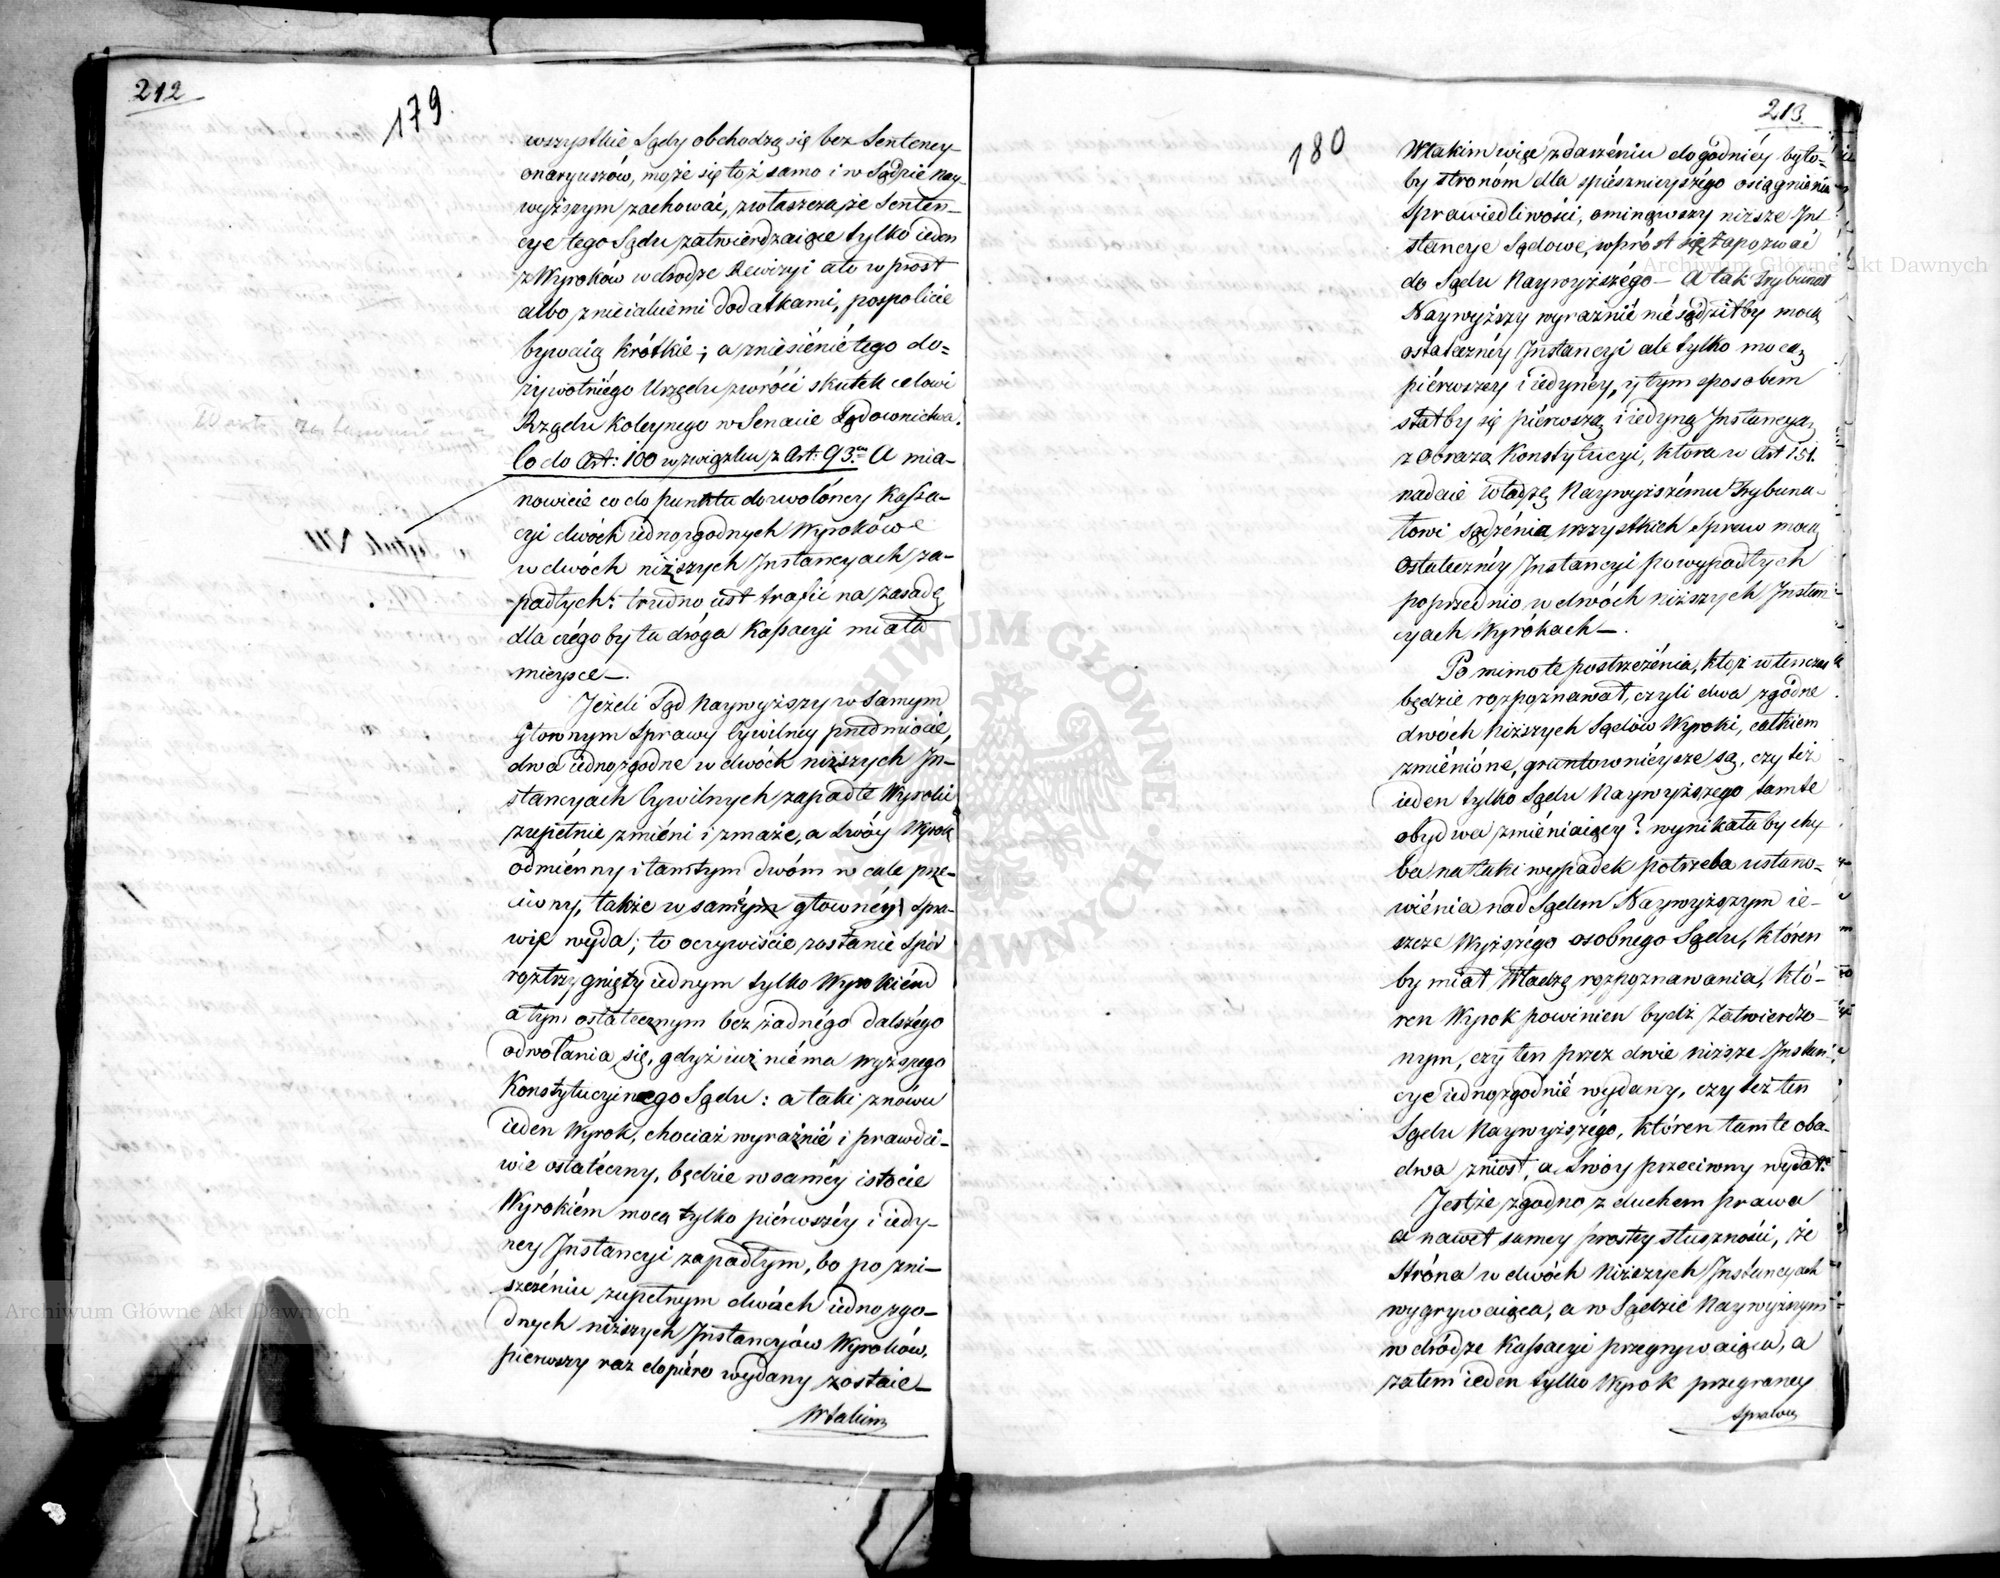 212
179.
wszystkie Sądy obchodzą się bez Sentency-
onaryuszów, może się toż samo i w Sądzie Nay-
wyższym zachować, zwłaszcza że Senten-
cye tego Sądu zatwierdzaiące tylko ieden
z Wyroków w drodze Rewizyi albo wprost
albo z nieiakiemi dodatkami, pospolicie
bywaią krótkie; a zniesiénié tego do=
żywotniégo Urzędu zwróci skutek celowi
Rzędu koleynego w Senacie Sądownictwa.
Co do Art: 100 w związku z Art: 93. A mia-
nowicie co do punktu dozwolóney Kassa-
cyi dwóch iednozgodnych Wyroków
w dwóch niższych Instancyach za-
padłych: trudno iest trafić na zasadę
dla czégo by ta dróga Kassacyi miała
mieysce-.
Jeżeli Sąd Naywyższy w samym
głownym Sprawy Cywilney przedmiocie,
dwa iednozgodne w dwóch niższych In-
stancyach Cywilnych zapadłe Wyroki
zupełnie zmiéni i zmaże, a Swóy Wyrok
odmiénny i tamtym dwóm w cale prze-
ciwny, także w samey głownéy Spra-
wie wyda; to oczywiście zostanie Spór
roztrzygnięty iednym tylko Wyrokiém
a tym ostatecznym bez żadnégo dalszégo
odwołania się, gdyż iuż niéma wyższego
Konstytucyinego Sądu: a taki znówu
ieden Wyrok, chociaż wyraźnié i prawdzi-
wie ostatéczny, będzie w saméy istocie
Wyrokiém mocą tylko piérwszéy i iedy-
ney Instancyi zapadłym, bo po zni-
szczéniu zupełnym dwóch iednozgo-
dnych niższych Instancyów Wyroków,
pierwszy raz dopiéro wydany zostaie-
W takim
213.
180
W takim więc zdarzéniu dogodniéy było=
by strónóm dla spiésznieyszégo osiągniénia
Sprawiedliwości, ominąwszy niższe In-
stancye Sądowe, wprost się zapozwać
do Sądu Naywyższégo - A tak Trybunał
Naywyższy wyraźnié nié sądziłby mocą
ostatecznéy Instancyi ale tylko mocą
piérwszey i iedynéy, y tym sposobem
stałby się piérwszą i iedyną Instancyą
z obrazą Konstytucyi, która w Art 151.
nadaie Władzę Naywyższému Trybuna-
łowi Sądzénia wszystkich Spraw mocą
Ostatecznéy Instancyi po wypadłych
poprzednio w dwóch niższych Instan-
cyach Wyrókach-.
Po mimo te postrzeżénia, któż w tenczas
będzie rozpoznawał, czyli dwa zgódne
dwóch Niższych Sądów Wyroki, całkiem
zmiénióne, gruntowniéysze są, czy też
ieden tylko Sądu Naywyższego tamte
obydwa zmiéniaiący? wynikała by chy-
ba na taki wypadek potrzeba ustano-
wiénia nad Sądem Naywyższym ie-
szcze Wyższégo osobnego Sądu, któren
by miał Władzę rozpoznawania, któ-
ren Wyrok powinien bydź Zatwierdzo-
nym, czy ten przez dwie niższe Instan-
cye iednozgodnié wydany, czy też ten
Sądu Naywyższégo, któren tamte oba-
dwa zniosł, a Swóy przeciwny wydał.
Jestże zgodno z duchem prawa
a nawet samey prostey słuszności, że
Stróna w dwóch Niższych Instancyach
wygrywaiąca, a w Sądzie Naywyższym
w dródze Kassacyi przegrywaiąca, a
zatem ieden tylko Wyrok przegraney
Sprawy
Archiwum Główne Akt Dawnych
Archiwum Główne Akt Dawnych
ARCHIWUM GŁÓWNE AKT DAWNYCH